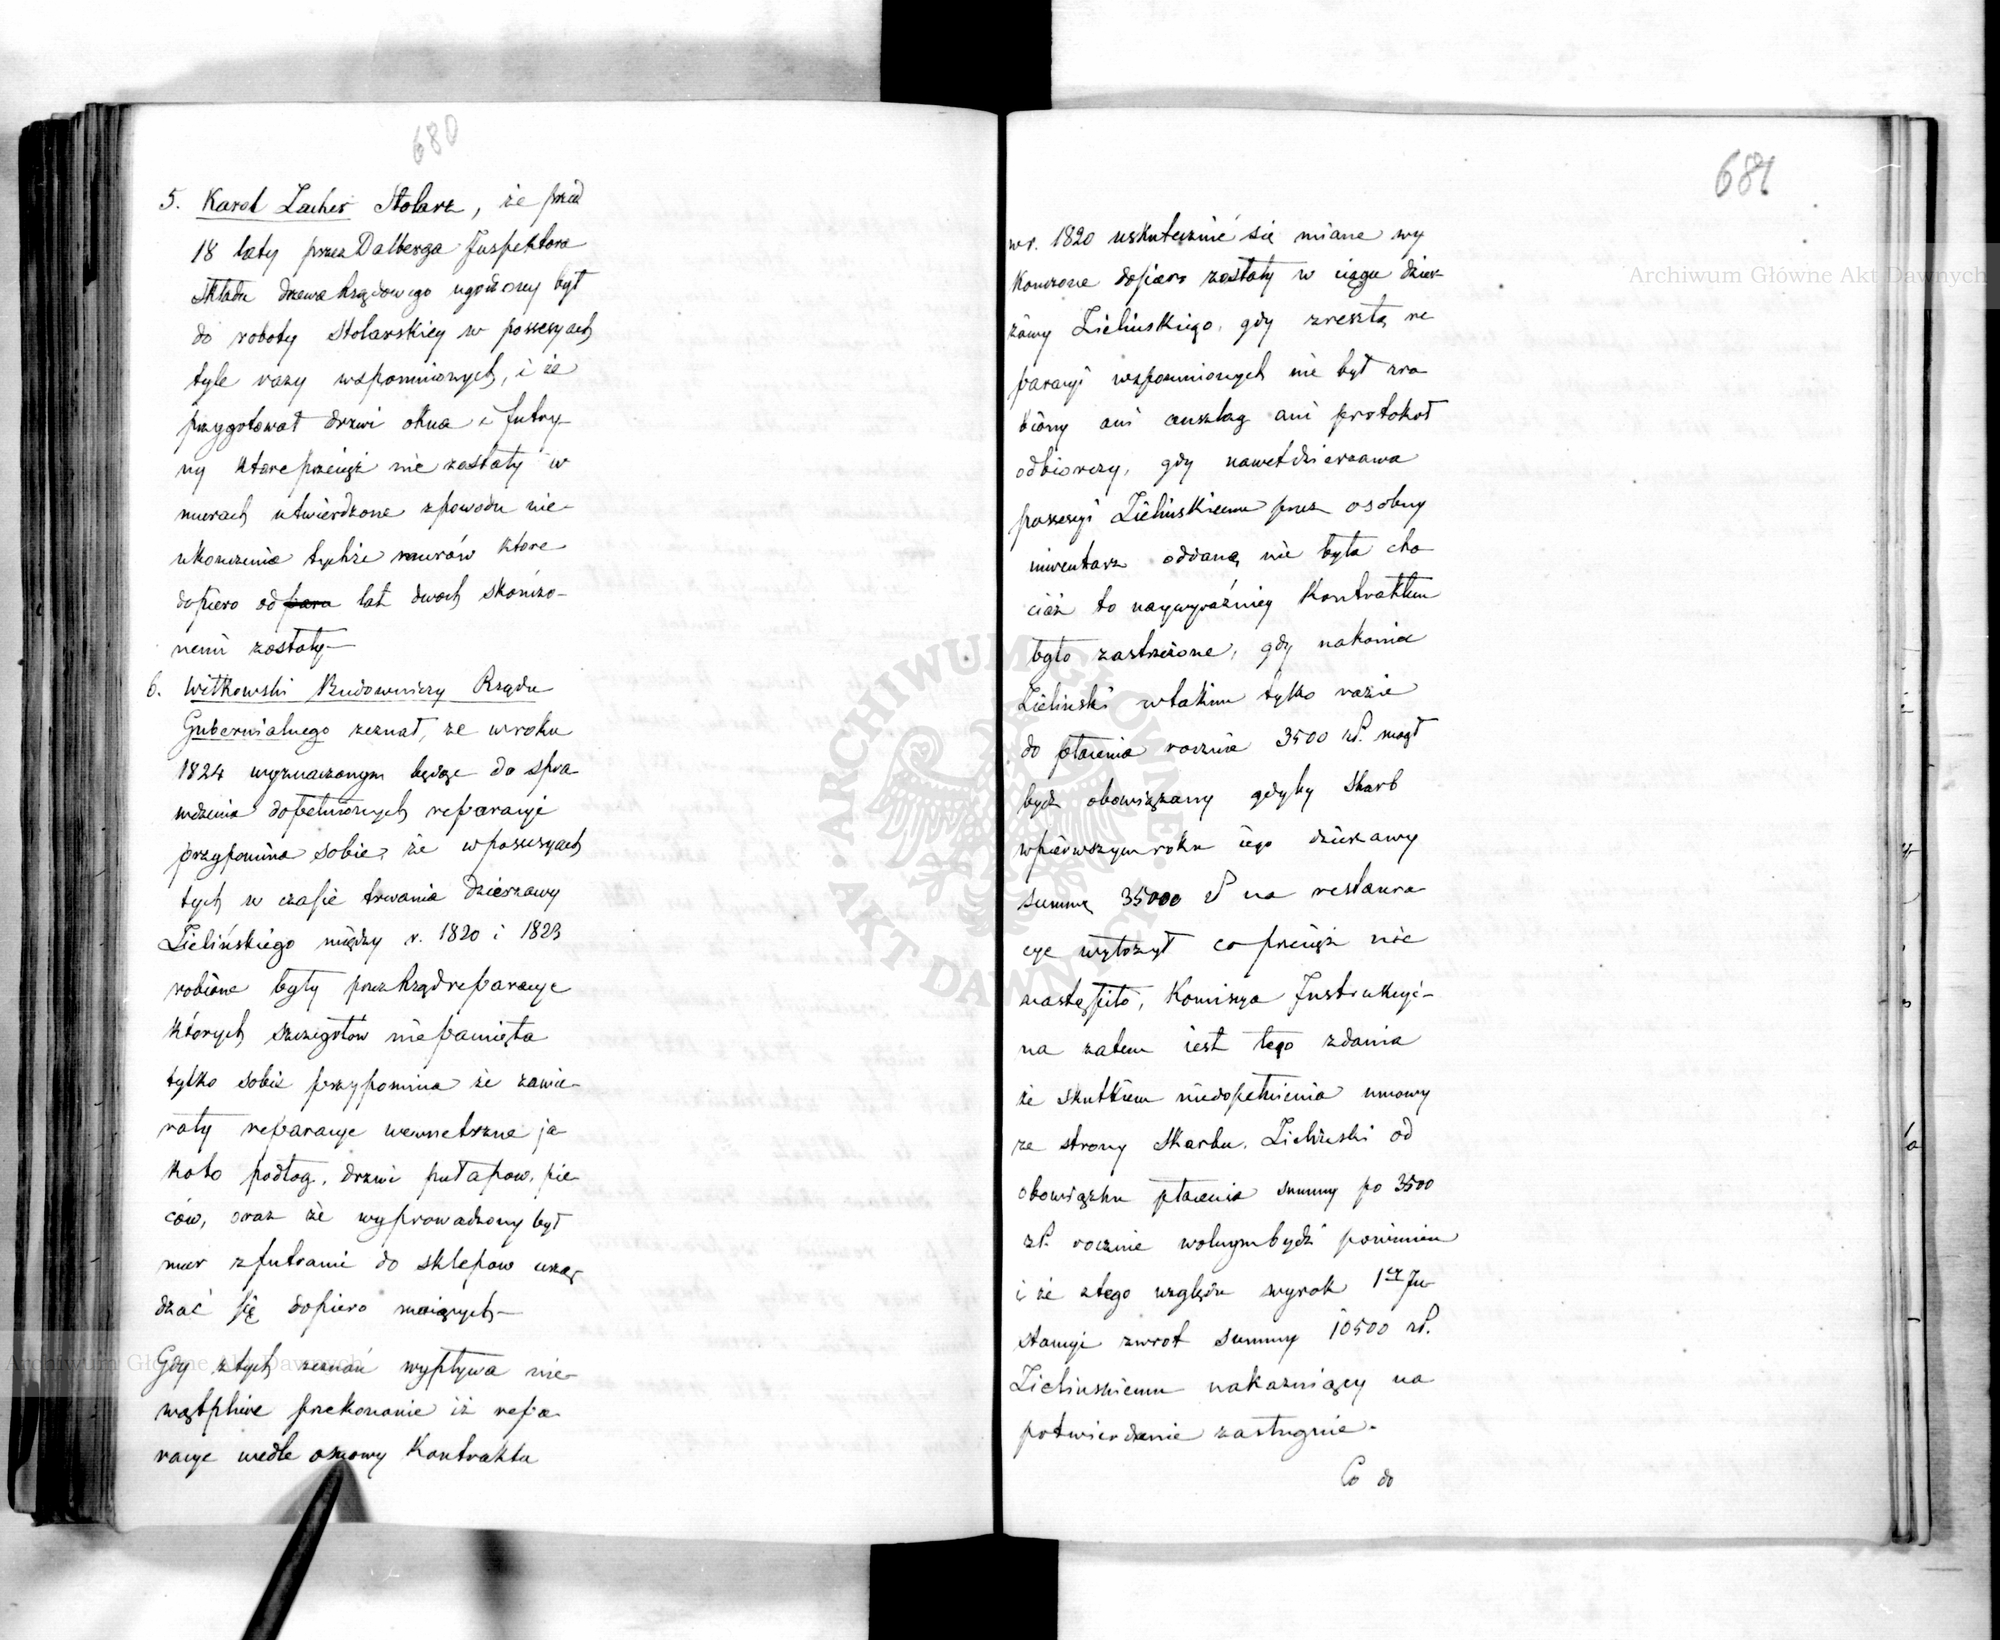 680
5. Karol Lacher Stolarz, że przed
18 laty przez Dalberga Inspektora
składu drzewa Rządowego ugodzony był
do roboty Stolarskiey w possesyach
tyle razy wspomnionych, i że
przygotował drzwi okna i futry-
ny ktore przecięż nie zostały w
murach utwierdzone zpowodu nie-
ukonczenia tychże murów ktore
dopiero od para lat dwoch skonczo-
nemi zostały—
6. Witkowski Budowniczy Rządu
Gubernialnego zeznał, że wroku
1824 wyznaczonym będąc do spra-
wdzenia dopełnionych reparacyi
przypomina sobie, że wpossesyach
tych w czasie trwania Dzierzawy
Zielińskiego między r. 1820 i 1823
robione były przez Rząd reparacye
których szczegółow niepamięta
tylko sobie przypomina że zawie-
rały reparacye wewnetrzne ja
koto podłog, drzwi pułapow, pie-
ców, oraz że wyprowadzony był
mur zfutrami do sklepow urzą
dzać się dopiero maiących—
Gdy ztych zeznań wypływa nie-
wątpliwe przekonanie iż repa-
racye wedle osnowy Kontraktu
681
wr. 1820 uskutecznić się miane wy
konczone dopiero zostały w ciągu dzier-
żawy Zielinskiego, gdy zresztą re
paracyi wspomnionych nie był zro
biony ani anszlag ani protokoł
odbiorczy, gdy nawet dzierzawa
possesyi Zielinskiemu przez osobny
inwentarz oddaną nie była cho
ciaż to naywyraźniey Kontraktem
było zastrzeżone, gdy nakoniec
Zielinski wtakim tylko razie
do płacenia rocznie 3500 zł. mogł
bydz obowiązany gdyby Skarb
wpierwszym roku iego dzierzawy
summę 35000 zł na restaura
cye wyłożył co przecięż nie
nastąpiło, Komisya Instrukcyi-
na zatem iest tego zdania
że skutkiem niedopełnienia umowy
ze strony Skarbu, Zielinski od
obowiązku płacenia summy po 3500
zł. rocznie wolnym bydź powinien
i że ztego względu wyrok 1ey In
stancyi zwrot summy 10500 zł.
Zielinskiemu nakazuiący na
potwierdzenie zasługuie.
Co do
Archiwum Główne Akt Dawnych
Archiwum Główne Akt Dawnych
ARCHIWUM GŁÓWNE AKT DAWNYCH